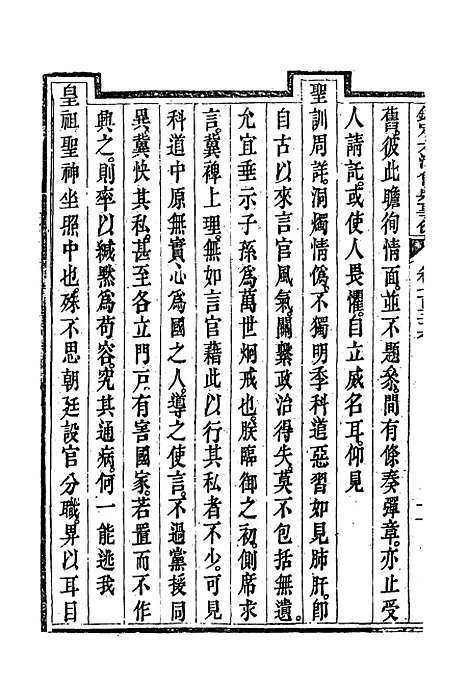 舊彼此瞻徇情面並不題叅間有條奏彈章亦止受
人請託或使人畏懼自立威名耳仰見
聖訓周詳洞燭情偽不獨明季科道惡習如見肺肝卽
自古以來言官風氣關繫政治得失莫不包括無遺
允宜垂示子孫為萬世炯戒也朕臨御之初側席求
言冀裨上理無如言官藉此以行其私者不少可見
科道中原無實心為國之人導之使言不過黨援同
異冀快其私甚至各立門戸有害國家若置而不作
興之則率以緘黙為茍容究其通病何一能逃我
皇祖聖神坐照中也殊不思朝廷設官分職畀以耳目